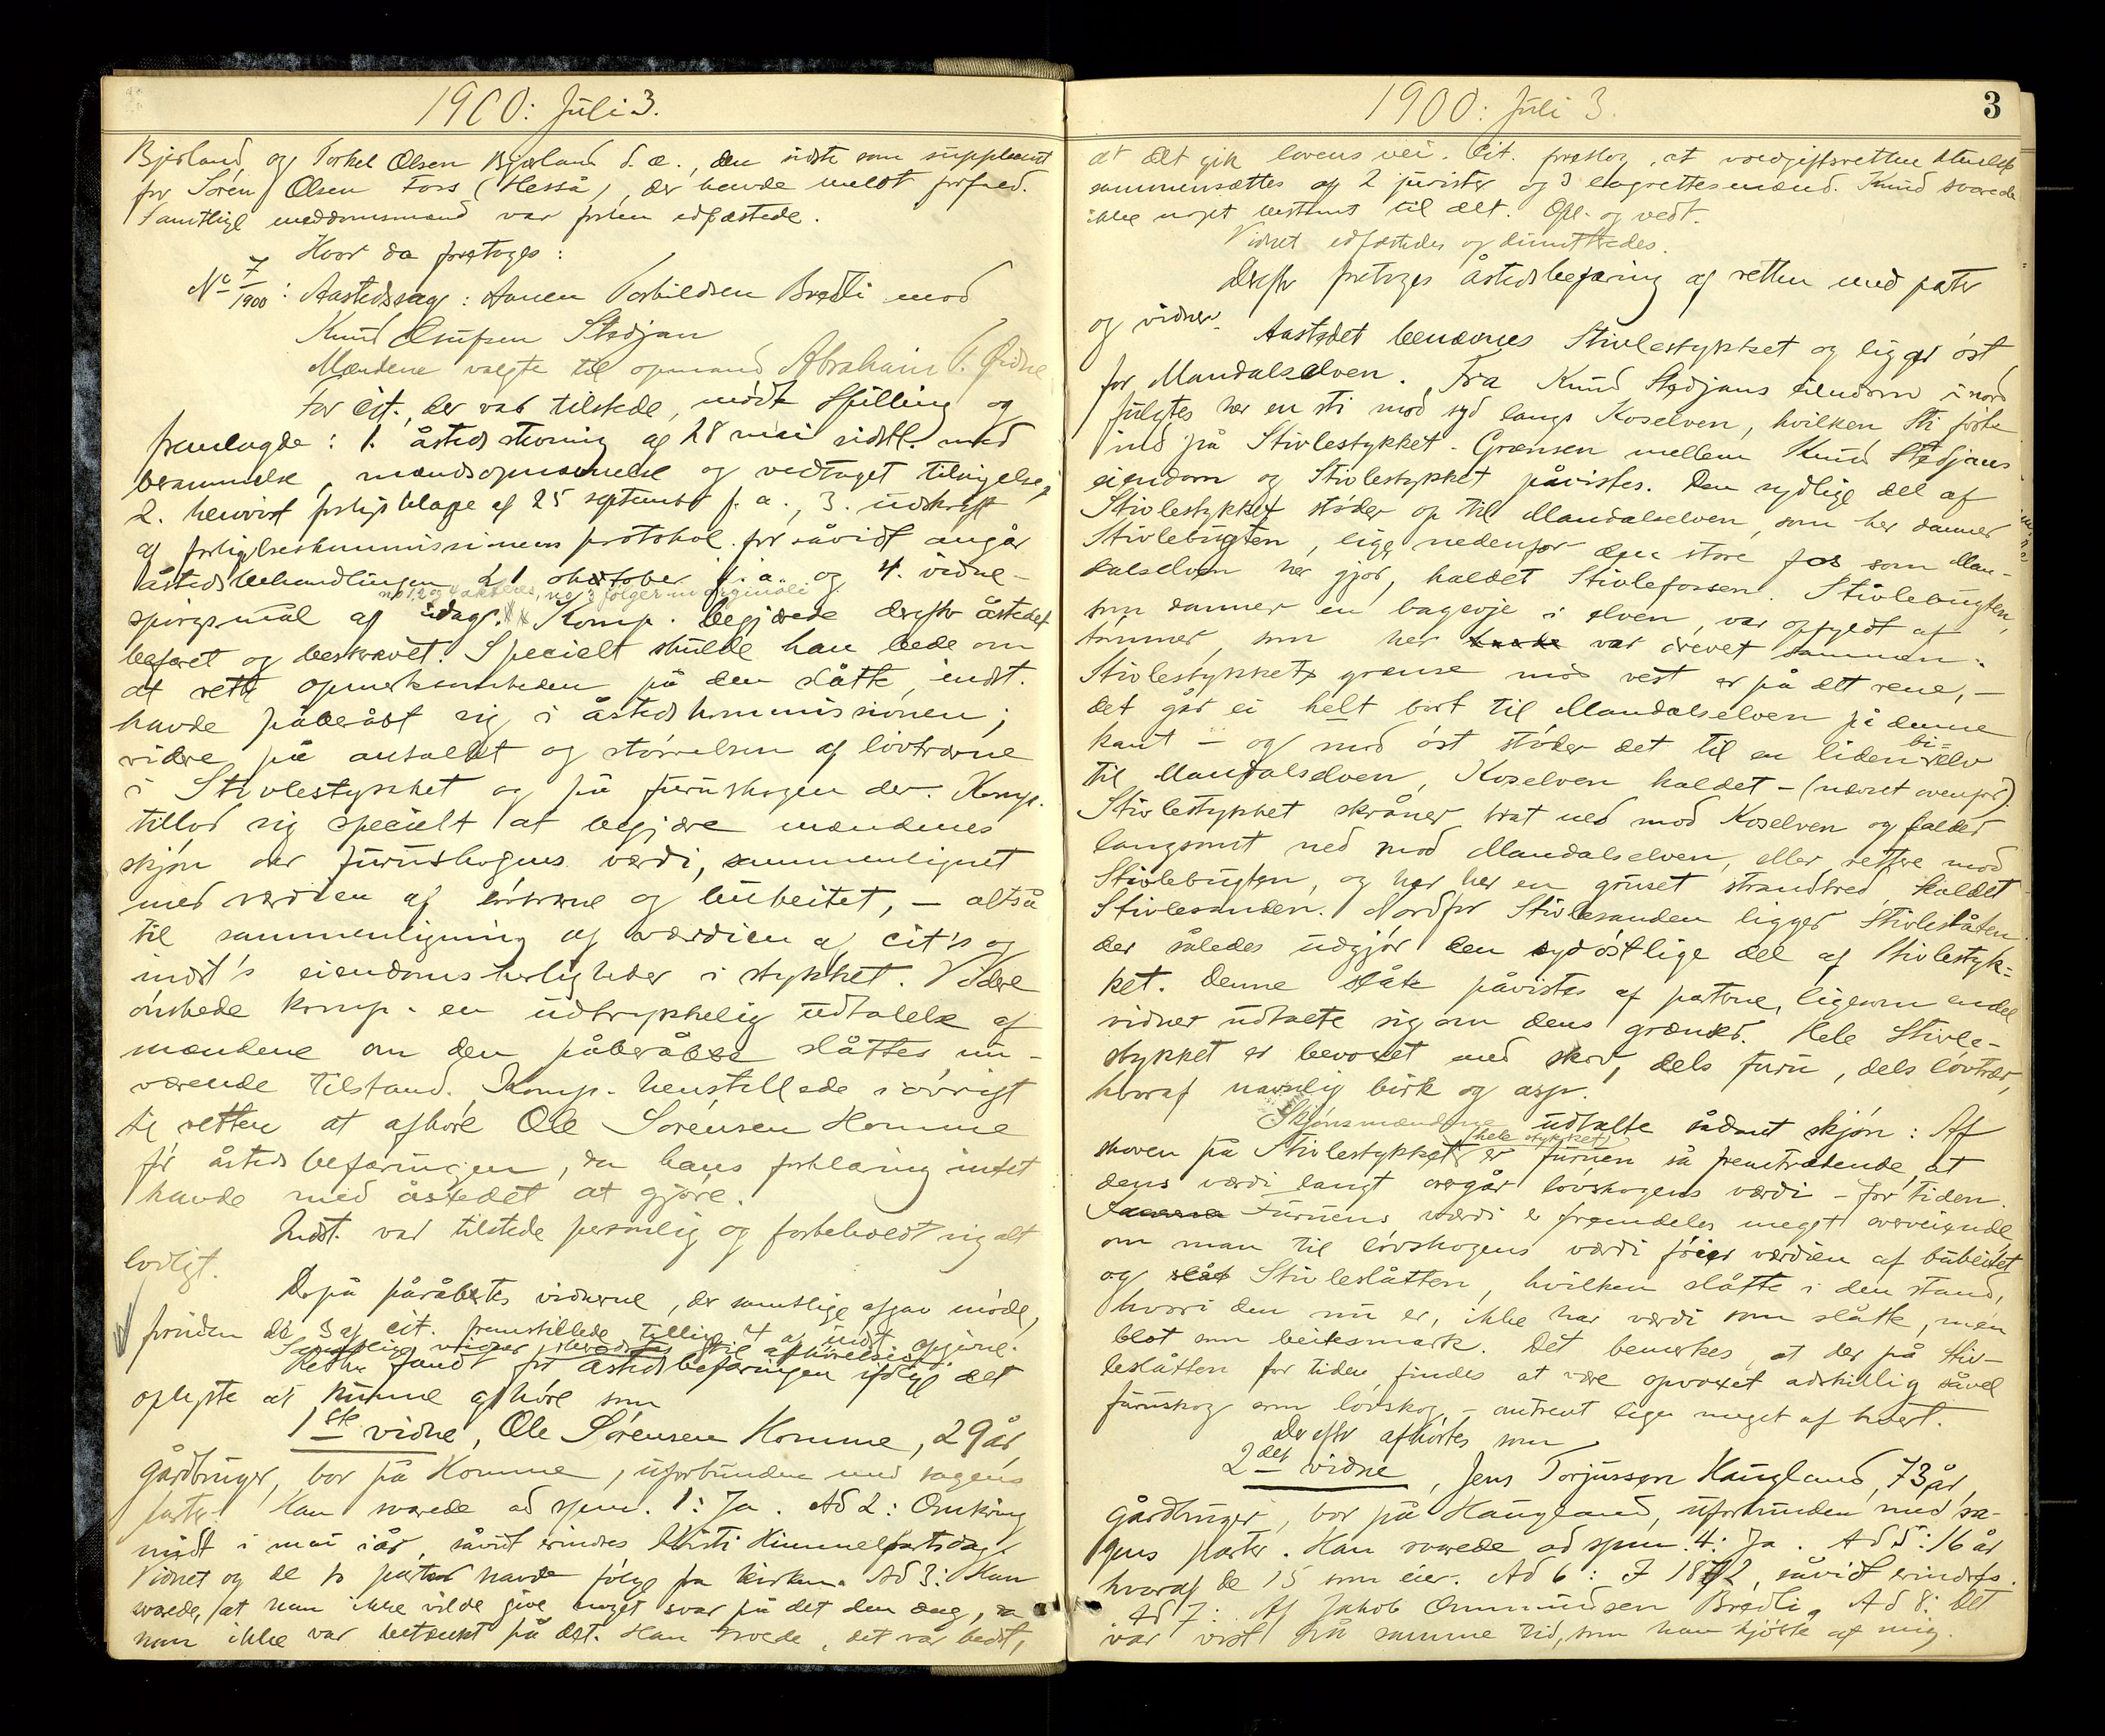 1900: Juli 3.
Bjerland, og Torkel Olsen Bjerland d.æ., den sidste som suppleant
for Sören Olsen Fors (Hesså), der havde meldt forfald.
Samtlige meddomsmænd var forhen edfæstede.
Hvor da foretoges:
No 7/1900: Aastedssag: Aanen Torkildsen Brødli mod
Knud Gnufsen Stedjan
Mændene valgte til opmand Abraham T. Øidne
For cit., der var tilstede, mødte Spilling og
fremlagde: 1. åstedsstevning af 28 mai sidstl. med
berammelse, mændsopnævnelse og vedtaget tilsigelse,
2. henvist forligsklage af 25 september f.a., 3. udskrift
af forligelseskommissionens protokol for såvidt angår
åstedsbehandlingen 21 oktober f.a. og 4. vidne-
no 1, 2 og 4 aktelæs, no 3 følger in originali
spörgsmål af idag. Komp. begjærede derefter åstedet
befaret og beskrevet. Specielt skulde han bede om
at rette opmerksomheden på den slåtte, indst.
havde påberåbt sig i åstedskommissionen;
videre på antallet og störrelsen af lövtrærne
i Stivlestykket og på furuskogen der. Komp.
tillod sig specielt at begjære mændenes
skjön over furuskogens værdi, sammenlignet
med værdien af lövtrærne og bubeitet, – altså
til sammenligning af værdien af cit's og
indst's eiendomsherligheder i stykket. Videre
önskede komp. en udtrykkelig udtalelse af
mændene om den påberåbte slåttes nu-
værende tilstand. Komp. henstillede iövrigt
til retten at afhöre Ole Sörensen Homme
för åstedsbefaringen, da hans forklaring intet
havde med åstedet at gjöre.
Indst. var tilstede personlig og forbeholdt sig alt
lovligt.
Derpå påråbtes vidnerne, der samtlige afgav möde,
foruden de 3 af cit. fremstillede tillige 4 af indst. opgivne.
Retten fandt för åstedsbefaringen ifölge det
oplyste at kunne afhöre som
1ste vidne, Ole Sörensen Homme, 29 år,
gårdbruger, bor på Homme, uforbunden med sagens
parter. Han svarede ad spm. 1: Ja. Ad 2: Omkring
midt i mai iår, såvidt erindres Kristi Himmelfartsdag.
Vidnet og de to parter havde fölge fra kirken. Ad 3: Han
svarede, at han ikke vilde give noget svar på det den dag, da
han ikke var betænkt på det. Han troede, det var bedst,
1900: Juli 3.
3
at det gik lovens vei. Cit. foreslog, at voldgiftsretten skulde
sammensættes af 2 jurister og 3 lagrettesmænd. Knud svarede
ikke noget bestemt til det. Opl. og vedt.
Vidnet edfæstedes og dimitteredes.
Derefter foretoges åstedsbefaring af retten med parter
og vidner.
Aastedet benævnes Stivlestykket og ligger öst
for Mandalselven. Fra Knud Stedjans eiendom i nord
fulgtes her en sti mod syd langs Koselven, hvilken sti förte
ind på Stivlestykket. Grænsen mellem Knud Stedjans
eiendom og Stivlestykket påvistes. Den sydlige del af
Stivlestykket stöder op til Mandalselven, som her danner
Stivlebugten, lige nedenfor den store fos som Man-
dalselven her gjör, kaldet Stivlefossen. Stivlebugten,
som danner en bagevje i elven, var opfyldt af
tömmer, som her var drevet sammen.
Stivlestykkets grænse mod vest er på det rene, –
det går ei helt bort til Mandalselven på denne
kant – og mod öst stöder det til en liden bi-elv
til Mandalselven, Koselven kaldet – (nævnt ovenfor).
Stivlestykket skråner brat ned mod Koselven og falder
langsomt ned mod Mandalselven, eller rettere mod
Stivlebugten, og har her en gruset strandbred, kaldet
Stivlesanden. Nordfor Stivlesanden ligger Stivleslåtten
der således udgjör den sydöstlige del af Stivlestyk-
ket. Denne slåtte påvistes af parterne, ligesom endel
vidner udtalte sig om dens grænser. Hele Stivle-
stykket er bevoxet med skov, dels furu, dels lövtrær,
hvoraf navnlig birk og asp.
Skjönsmændene udtalte sådant skjön: Af
skoven på Stivlestykket (hele stykket) er furuen så fremtrædende, at
dens værdi langt overgår lövskogens værdi – for tiden.
Furuens værdi er fremdeles meget overveiende
om man til lövskogens værdi föier værdien af bubeitet
og Stivleslåtten, hvilken slåtte i den stand,
hvori den nu er, ikke har værdi som slåtte, men
blot som beitesmark. Det bemerkes, at der på Stiv-
leslåtten for tiden findes at være opvoxet adskillig såvel
furuskog som lövskog, – omtrent lige meget af hvert.
Derefter afhörtes som
2det vidne, Jens Torjussen Haugland, 73 år,
gårdbruger, bor på Haugland, uforbunden med sa-
gens parter. Han svarede ad spm. 4: Ja. Ad 5: 16 år
hvoraf de 15 som eier. Ad 6: I 1872, såvidt erindres.
Ad 7: Af Jakob Ommundsen Brødli. Ad 8: Det
var vist på samme tid, som han kjöbte af mig.